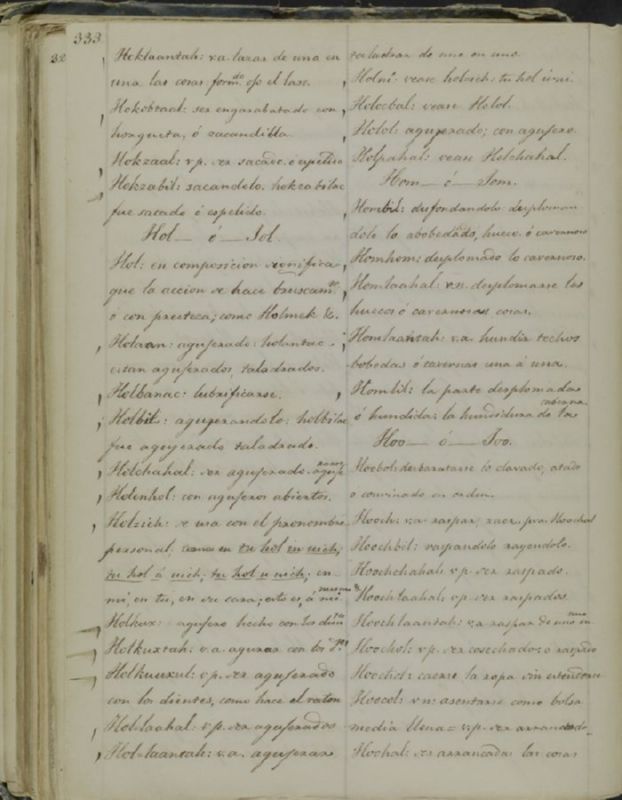 333
32
Heklaantah: v.a. lazar de una en
una las cosas form.do ojo el lazo.
Hokobtaal: ser engarabatado con
horqueta, ó zacandilla.
Hokzaal: v.p. ser sacado ó espelido
Hokzabil: sacandolo, hokzabilac
fue sacado ó espelido.
Hol — ó — Jol.
Hol: en composicion significa
que la accion se hace bruscam.te
ó con presteza; como Holmek &.
Holaan: agujerado holantac
estan agujerados, taladrados.
Holbanac: lubrificarse.
Holbil: agujerandolo: holbilac
fue agujerado taladrado.
Holchahal: ser agujerado
Holenhol: con agujeros abiertos.
Holzich: se usa con el pronombre
personal, como en tu hol in uich,
tu hol á uich, tu hol u uich; en
mi, en tu, en su cara; esto es, á mi
Holkux: agujero hecho con los dientes
Holkuxtah: v.a. agujerar con los d.tes
Holkuuxul: v.p. ser agujerado
con los dientes, como hace el raton
Hol-laahal: v.p. ser agujerados
Hol-laantah: v.a. agujerar
taladrar de uno en uno.
Holni: vease holuich: tu hol u ni.
Holocbal: vease Holol.
Holol: agujerado; con agujero.
Holpahal: vease Holchahal.
Hom — ó — Jom.
Hombil: desfondandolo desploman
dolo lo abobedado, hueco ó cavernoso
Homhom: desplomado lo cavernoso.
Homlaahal: v.n. desplomarse las
huecos ó cavernosas cosas.
Homlaantah: v.a. hundir techos
bobedas ó cavernas una á una.
Homlil: la parte desplomada
ó hundida; la hundidura de las
Hoo — ó — Joo.
Hoobol: desbaratarse lo clavado, atado
o convinado en orden.
Hooch: v.a. raspar, raer. pra. Hoochah
Hoochbil: raspandolo rayendolo.
Hoochchahal: v.p. ser raspado.
Hoochlaahal: v.p. ser raspados
Hoochlaantah: v.a. raspar de uno en uno
Hoochol: v.p. ser cosechado ó raspado
Hoochol: caerse la ropa sin estenderse
Hoocol: v.n. asentarse como bolsa
media llena = v.p. ser arrancado.
Hochal: ser arrancadas las cosas